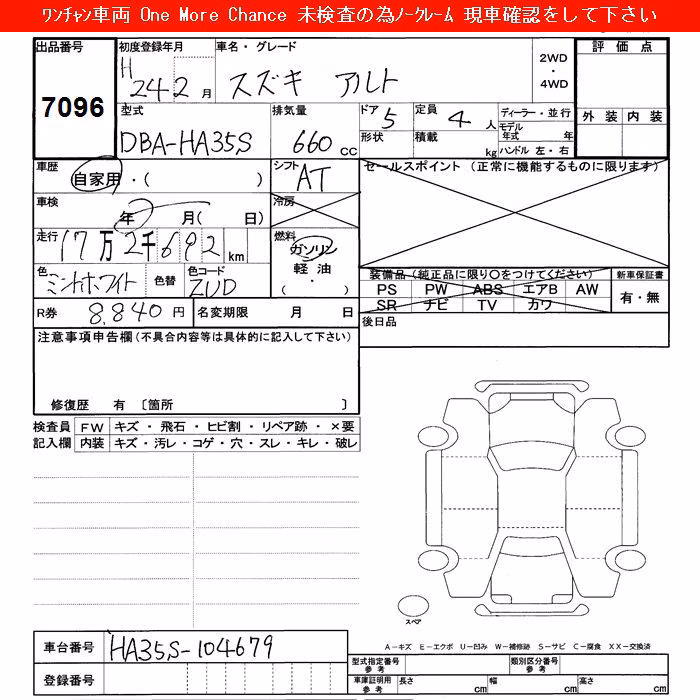 ﾜﾝﾁｬﾝ車両 One More Chance 未検査の為ﾉｰｸﾚｰﾑ 現車確認をして下さい
出品番号 初度登録年月 車名・グレード 評価点
7096 H 24 2 月 スズキ アルト 2WD・4WD
外装 内装
型式 排気量 ドア 5 定員 4 人 ディーラー・並行
DBA-HA35S 660 cc 形状 積載 kg モデル年式 年
ハンドル 左・右
車歴 自家用・( ) シフト AT セールスポイント (正常に機能するものに限ります)
車検 年 月( 日) 冷房
走行 17万2千692 km 燃料 ガソリン 軽油 ( ・ )
色 ミントホワイト 色替 色コード ZUD
装備品(純正品に限り○をつけてください) 新車保証書
PS PW ABS エアB AW 有・無
SR ナビ TV カワ
R券 8,840 円 名変期限 月 日 後日品
注意事項申告欄(不具合内容等は具体的に記入して下さい)
修復歴 有 〔箇所 〕
検査員 FW キズ・飛石・ヒビ割・リペア跡・×要
記入欄 内装 キズ・汚レ・コゲ・穴・スレ・キレ・破レ
スペア
車台番号 HA35S-104679
A-キズ E-エクボ U-凹み W-補修跡 S-サビ C-腐食 XX-交換済
登録番号 型式指定番号 参考 類別区分番号 参考
車庫証明用 参考 長さ cm 幅 cm 高さ cm